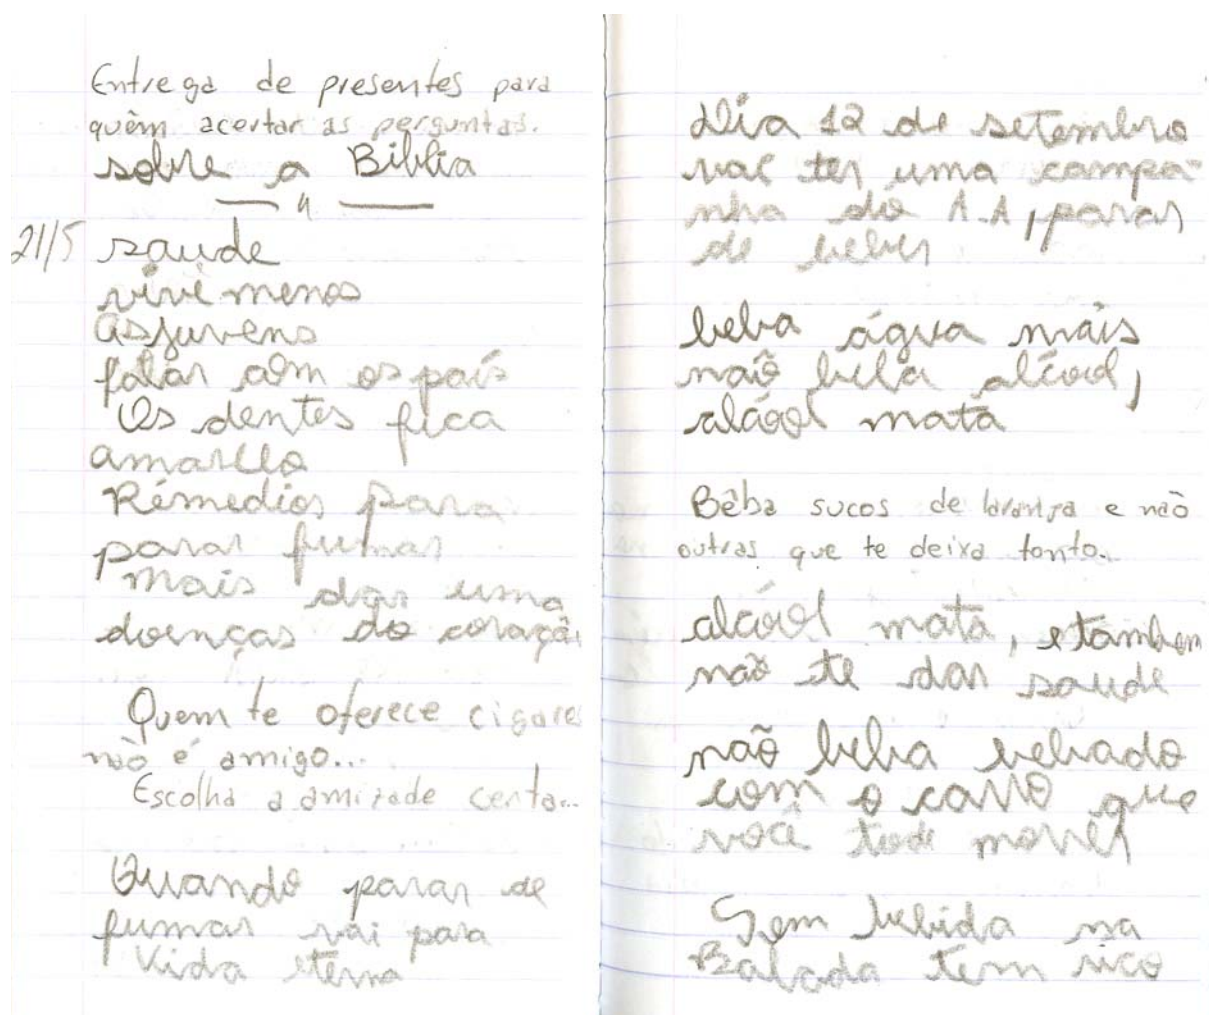 Entrega de presentes para
quêm acertar as perguntas.
sobre a Biblia
— " —
21/5 saude
vive menos
as juvens
falar com os país
Os dentes fica
amarello
Rémedios para
parar fumar
mais dar uma
doenças do coração
Quem te oferece cigares
não é amigo...
Escolha a amizade certa...
Quando parar de
fumar vai para
Vida eterna
Dia 12 de setembro
vai ter uma campa-
nha do A.A, parar
de beber
beba água mais
não beba alcóol,
alcóol mata
Bêba sucos de laranja e não
outras que te deixa tonto.
alcóol mata, e tambem
não te dar saude
não beba bebado
com o carro que
você pode morrer
Sem bebida na
Balada tem